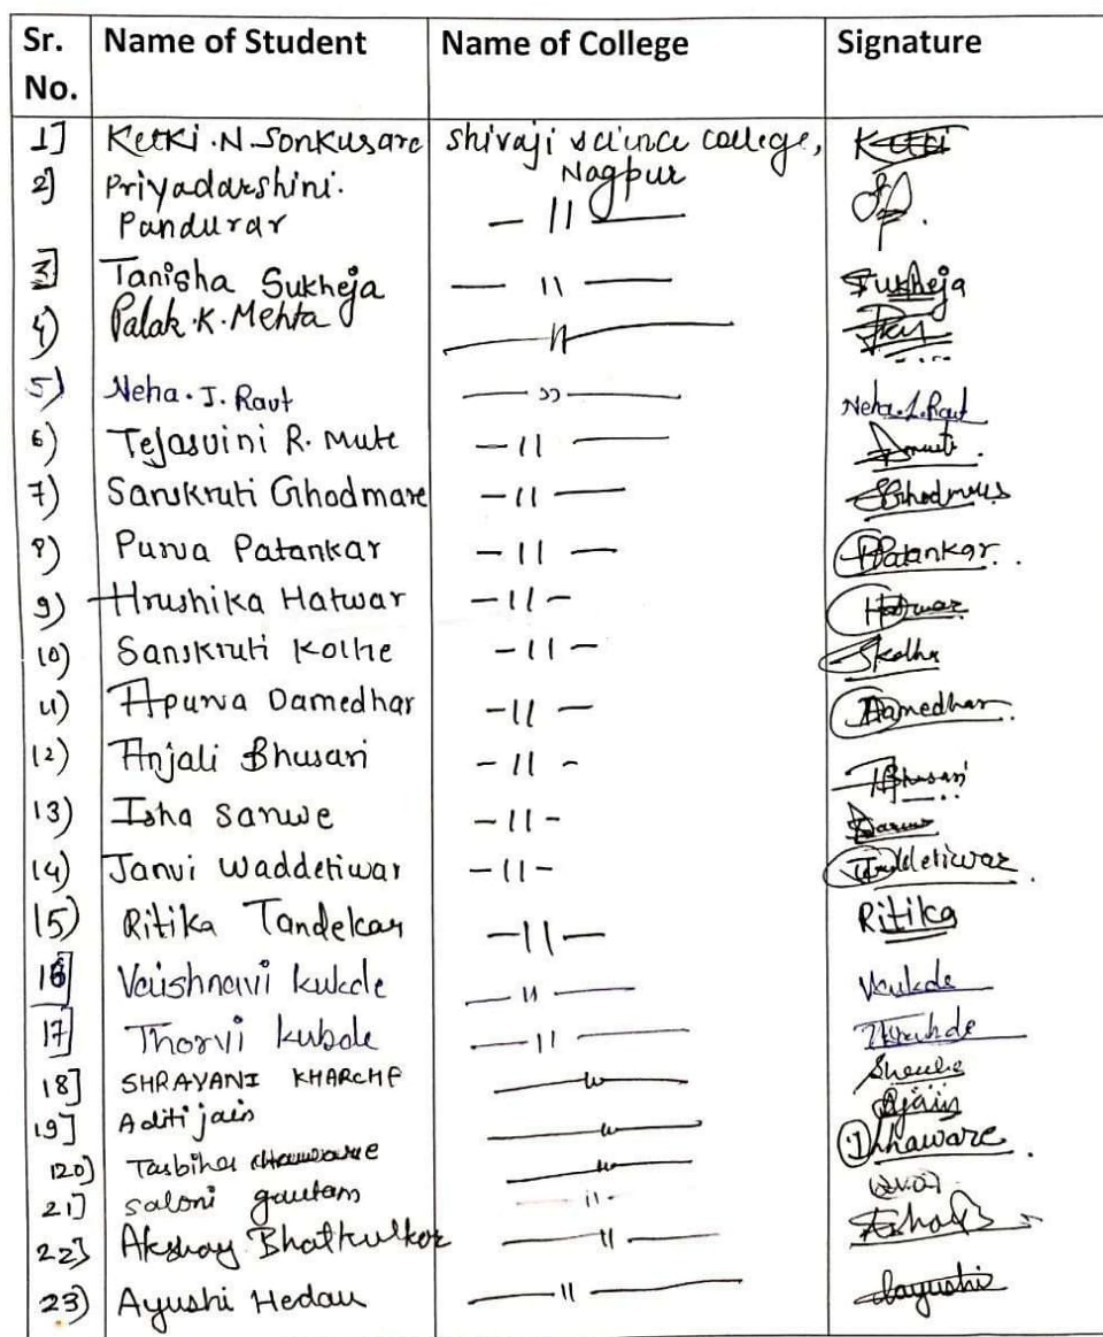 Sr. No. Name of Student Name of College Signature
1] Ketki .N. Sonkusare shivaji science college, Nagpur Ketki
2] Priyadarshini. Pandurar — 11 —
3] Tanisha Sukheja — 11 — Sukheja
4) Palak .K. Mehta — 11 —
5) Neha. J. Raut — " — Neha. J. Raut
6) Tejasvini R. Mute — 11 —
7) Sanskruti Ghodmare — 11 —
8) Purva Patankar — 11 — PPatankar.
9) Hrushika Hatwar — 11 — Hatwar
10) Sanskruti Kolhe — 11 — Skolhe
11) Apurva Damedhar — 11 —
12) Anjali Bhusari — 11 — ABhusari
13) Isha Sarwe — 11 —
14) Janvi Waddetiwar — 11 —
15) Ritika Tandekar — 11 — Ritika
16] Vaishnavi kukde — 11 — Vkukde
17] kubde — 11 —
18] KHARCHE — 11 —
19] Aditi jain — 11 — Ajain
20) Tasbiha — 11 —
21] saloni gautam — 11 —
22] Akshay Bhatkulkar — 11 —
23) Ayushi Hedau — 11 —